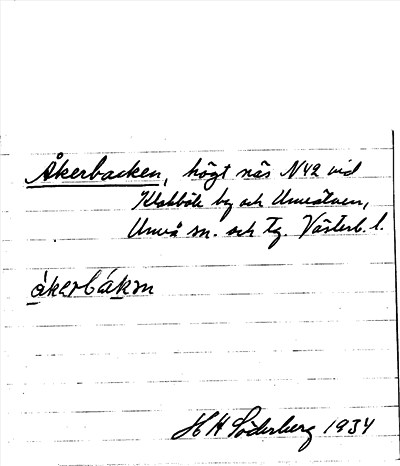 Åkerbacken, högt näs N42 vid
Klabböle by och Umeälven,
Umeå sn. och tg. Västerb. l.
åkerbákɐn
H H Söderberg 1934